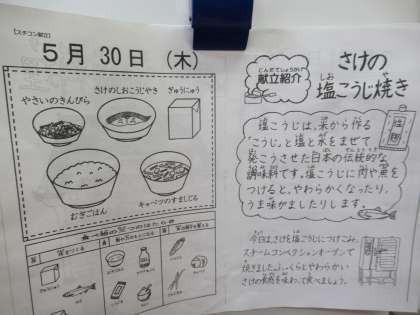 【スチコン献立】
5月 30日 (木)
さけのしおこうじやき
ぎゅうにゅう
やさいのきんぴら
むぎごはん
キャベツのすましじる
献立紹介
さけの
塩こうじ焼き
しお
や
塩こうじは、米から作る
「こうじ」と塩と水をまぜて
発こうさせた日本の伝統的な
調味料です。塩こうじに肉や魚を
つけると、やわらかくなったり、
うま味がましたりします。
今日は、さけを塩こうじにつけこみ、
スチームコンベクションオーブンで
焼きました。ふっくらとやわらかい
さけの食感を味わって食べましょう。